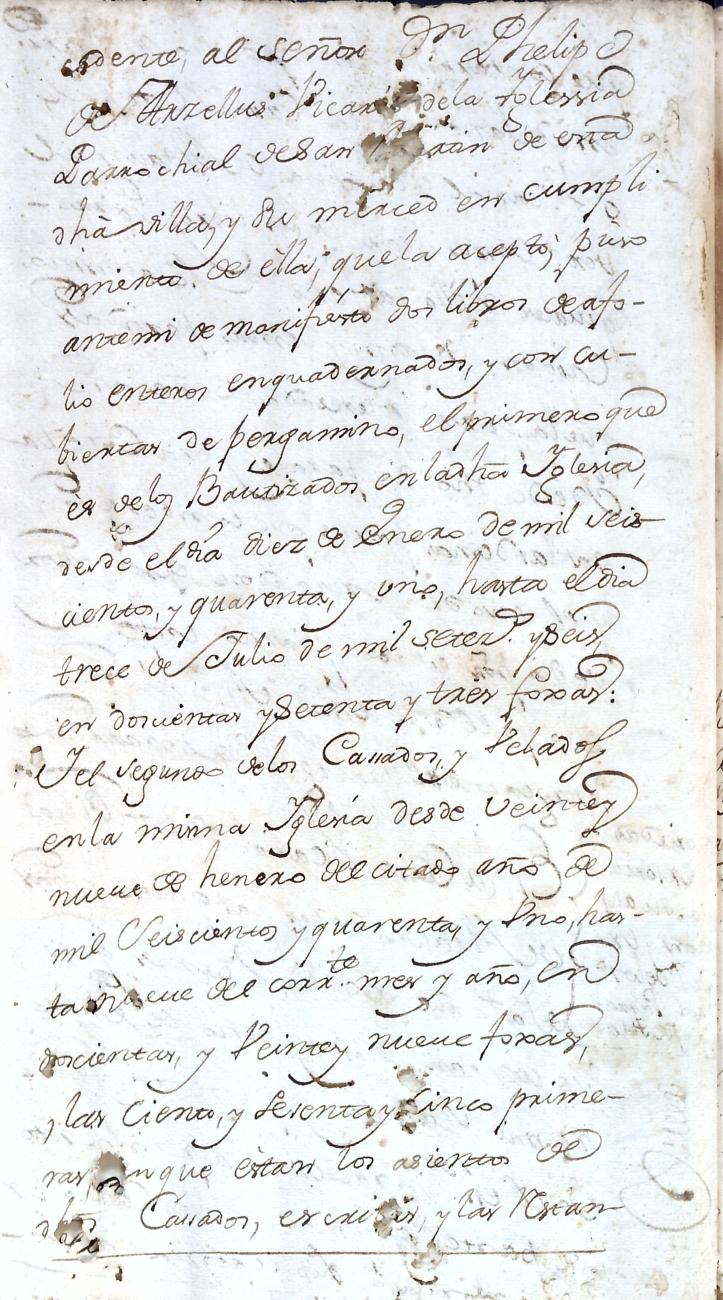 cedente, al señor Dn Phelipe
de Arzellus Vicario dela Yglessia
Parrochial de San Martin de esta
dha villa, y Su merced en cumpli
miento de ella, que la acepto, puso
antemi de manifiesto dos libros de afo-
lio enteros enquadernados, y con cu-
biertas de pergamino, el primero que
es delos Bautizados en la dha Yglesia,
desde el dia diez de Enero de mil seis
cientos, y quarenta, y uno, hasta el dia
trece de Julio de mil seteze. y seis,
en doscientas y Setenta y tres foxas:
Y el segundo delos Cassados, y Velados
en la misma Yglesia desde veinte y
nueve de henero del citado año de
mil Seiscientos y quarenta, y Vno, has-
ta nueve del corrte. mes y año, en
doscientas, y Veinte y nueve foxas,
y las Ciento, y Sesenta y Cinco prime-
ras, en que estan los asientos de
dhos Cassados, escritas, y las Restan-